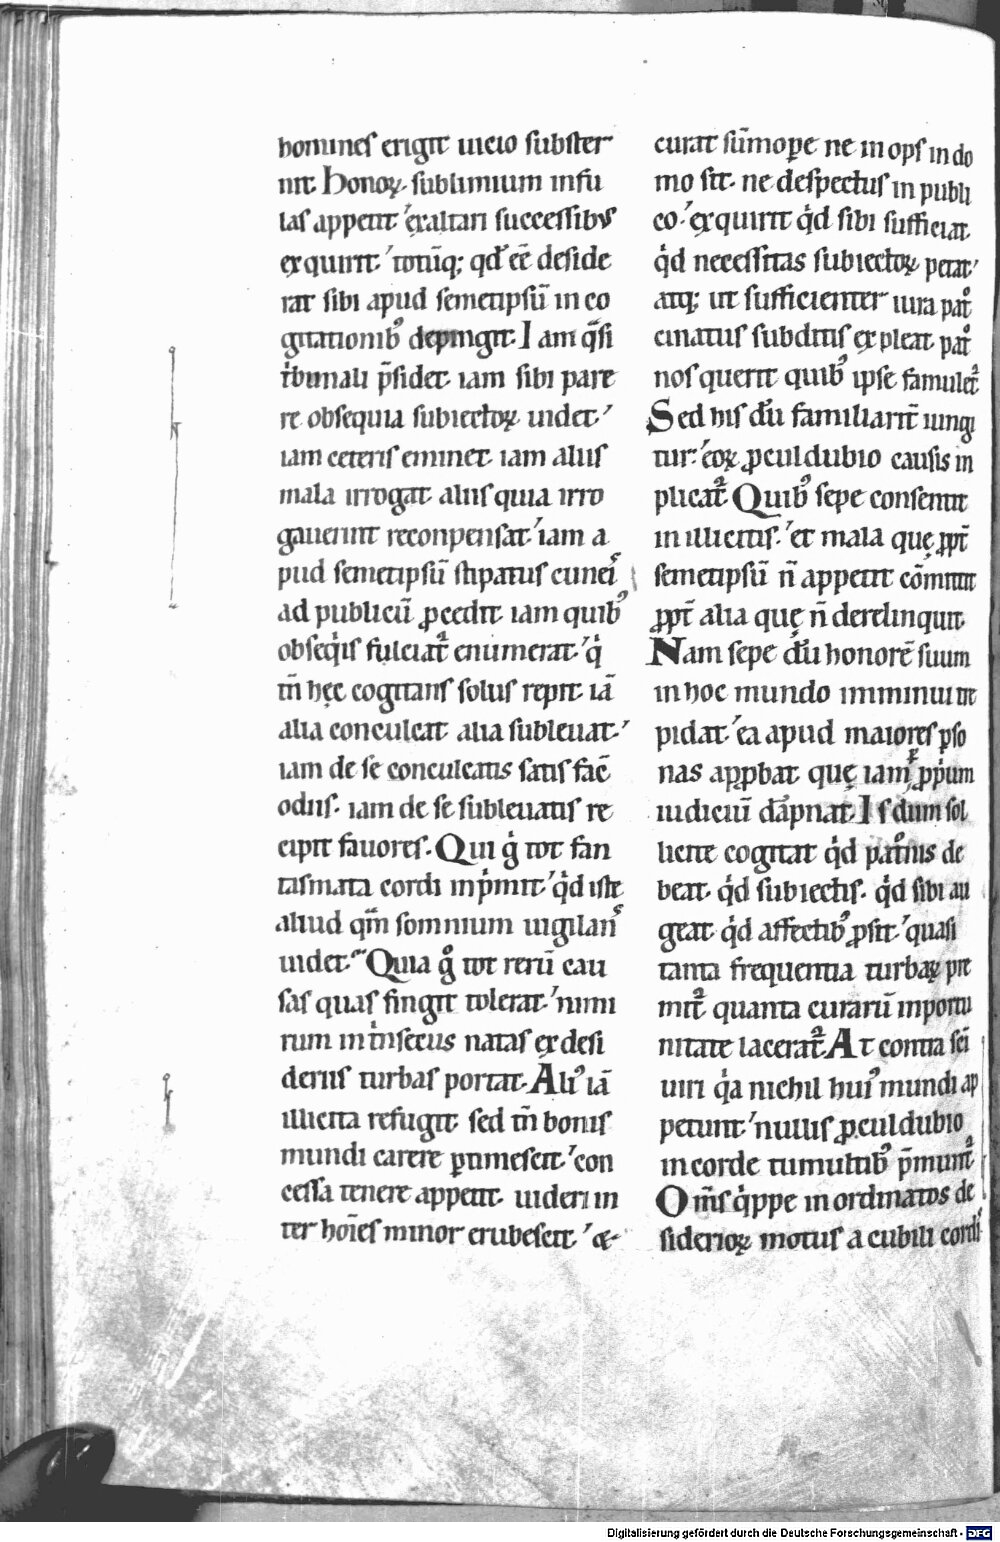 homines erigit uicio subster
nit. Honoꝝ. sublimium infu
las appetit.' exaltari successibus
exquirit.' totū q; qđ eē deside
rat sibi apud semetipsū in co
gitationib; depingit. Iam q̄si
tⁱbunali p̄sidet. iam sibi pare
re obsequia subiectoꝝ uidet.'
iam ceteris eminet. iam aliis
mala irrogat. aliis quia irro
gauerint reconpensat.' iam a
pud semetipsū stipatus cuneis
ad publicū ꝓcedit. iam quib;
obseqⁱis fulciat᷑ enumerat.' qⁱ
tn̄ hęc cogitans solus repit. iā
alia conculcat. alia subleuat.'
iam de se conculcatis satisfac̄
odiis. iam de se subleuatis re
cipit fauores. Qui g̊ tot fan
tasmata cordi inpⁱmit.' qⁱd iste
aliud qm̄ somnium uigilans
uidet. Quia g̊ tot rerū cau
sas quas fingit tolerat.' nimi
rum intⁱnsecus natas ex desi
deriis turbas portat. Alī iā
illicita refugit. sed tn̄ bonis
mundi carere ꝑtimescit.' con
cessa tenere appetit. uideri in
ter hoīes minor erubescit.' &
curat sūmoꝑe ne inops in do
mo sit. ne despectus in publi
co.' exquirit qⁱd sibi sufficiat.
qⁱd necessitas subiectoꝝ petat.'
atq; ut sufficienter iura pat̊
cinatus subditis expleat. pat̊
nos querit quib; ipse famulet᷑
Sed his dū familiarit̄ iungi
tur.' eoꝝ ꝓculdubio causis in
plicat᷑. Quib; sepe consentit
in illicitis.' et mala quę ꝓpt̄
semetipsū n̄ appetit cōmittit
ꝓpt̄ alia quę n̄ derelinquit.
Nam sepe dū honorē suum
in hoc mundo imminui tre
pidat.' ea apud maiores ꝑso
nas apꝓbat. quę iam ꝑ ꝓpⁱum
iudiciū dāpnat. Is dum sol
licite cogitat qⁱd pat̊nis de
beat. qⁱd subiectis. qⁱd sibi au
geat. qⁱd affectib; ꝓsit.' quasi
tanta frequentia turbaꝝ pre
mit᷑ quanta curarū inportu
nitate lacerat᷑. At contra sc̄i
uiri qⁱa nichil hui; mundi ap
petunt.' nullis ꝓculdubio
in corde tumultib; p̄munt᷑.
Om̄s qⁱppe inordinatos de
sideriorꝝ motus a cubili cordis
Digitalisierung gefördert durch die Deutsche Forschungsgemeinschaft - DFG